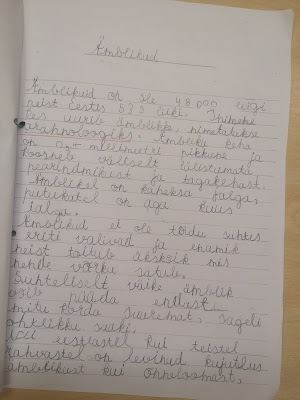 Ämblikud
Ämblikuid on üle 48 000 liigi
neist eestis 533 liiki. Inimene
kes uurib ämblikke, nimetatakse
arahnoloogiks. Ämbliku keha
on millimeetri pikkune ja
koosneb väliselt lülistumata
pearindmikust ja tagakehast.
Ämblikel on kaheksa jalga,
putukatel on aga kuus
jalga.
Ämblikud ei ole toidu suhtes
eriti valivad ja enamik
neist toitub ükskõik mis
nende võrku satub.
Suhteliselt väike ämblik
võib püüda endast
mitu korda suuremat, sageli
ohtlikku saaki.
eestlastel kui teistel
rahvastel on levinud kujutlus
ämblikust kui õnneloomast,